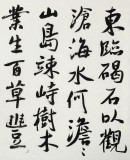 東臨碣石以觀
滄海水何澹々
山島竦峙樹木
叢生百草豐